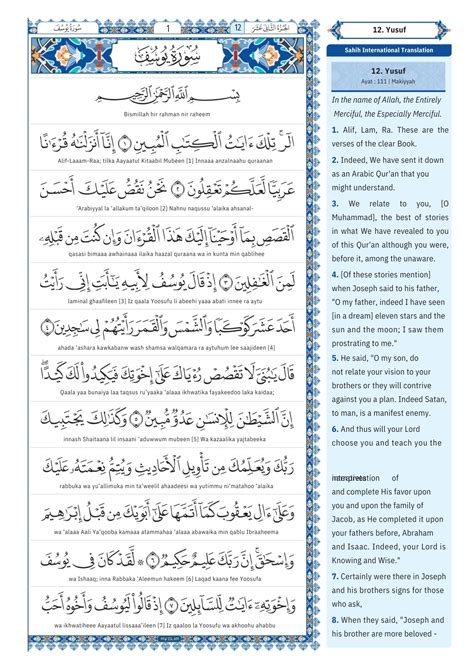 سورة يوسف
1
12
الجزء الثاني عشر
سُورَةُ يُوسُفَ
بِسْمِ اللَّهِ الرَّحْمَٰنِ الرَّحِيمِ
Bismillah hir rahman nir raheem
الٓر ۚ تِلْكَ ءَايَٰتُ ٱلْكِتَٰبِ ٱلْمُبِينِ ۝١ إِنَّآ أَنزَلْنَٰهُ قُرْءَٰنًا
Alif-Laaam-Raa; tilka Aayaatul Kitaabil Mubeen [1] Innaaa anzalnaahu quraanan
عَرَبِيًّا لَّعَلَّكُمْ تَعْقِلُونَ ۝٢ نَحْنُ نَقُصُّ عَلَيْكَ أَحْسَنَ
'Arabiyyal la 'allakum ta'qiloon [2] Nahnu naqussu 'alaika ahsanal-
ٱلْقَصَصِ بِمَآ أَوْحَيْنَآ إِلَيْكَ هَٰذَا ٱلْقُرْءَانَ وَإِن كُنتَ مِن قَبْلِهِۦ
qasasi bimaaa awhainaaa ilaika haazal quraana wa in kunta min qablihee
لَمِنَ ٱلْغَٰفِلِينَ ۝٣ إِذْ قَالَ يُوسُفُ لِأَبِيهِ يَٰٓأَبَتِ إِنِّى رَأَيْتُ
laminal ghaafileen [3] Iz qaala Yoosufu li abeehi yaaa abati innee ra aytu
أَحَدَ عَشَرَ كَوْكَبًا وَٱلشَّمْسَ وَٱلْقَمَرَ رَأَيْتُهُمْ لِى سَٰجِدِينَ ۝٤
ahada 'ashara kawkabanw wash shamsa walqamara ra aytuhum lee saajideen [4]
قَالَ يَٰبُنَىَّ لَا تَقْصُصْ رُءْيَاكَ عَلَىٰٓ إِخْوَتِكَ فَيَكِيدُوا۟ لَكَ كَيْدًا ۖ
Qaala yaa bunaiya laa taqsus ru'yaaka 'alaaa ikhwatika fayakeedoo laka kaidaa;
إِنَّ ٱلشَّيْطَٰنَ لِلْإِنسَٰنِ عَدُوٌّ مُّبِينٌ ۝٥ وَكَذَٰلِكَ يَجْتَبِيكَ
innash Shaitaana lil insaani 'aduwwum mubeen [5] Wa kazaalika yajtabeeka
رَبُّكَ وَيُعَلِّمُكَ مِن تَأْوِيلِ ٱلْأَحَادِيثِ وَيُتِمُّ نِعْمَتَهُۥ عَلَيْكَ
rabbuka wa yu'allimuka min ta'weelil ahaadeesi wa yutimmu ni'matahoo 'alaika
وَعَلَىٰٓ ءَالِ يَعْقُوبَ كَمَآ أَتَمَّهَا عَلَىٰٓ أَبَوَيْكَ مِن قَبْلُ إِبْرَٰهِيمَ
wa 'alaaa Aali Ya'qooba kamaaa atammahaa 'alaaa abawaika min qablu Ibraaheema
وَإِسْحَٰقَ ۚ إِنَّ رَبَّكَ عَلِيمٌ حَكِيمٌ ۝٦ ۞ لَّقَدْ كَانَ فِى يُوسُفَ
wa Ishaaq; inna Rabbaka 'Aleemun hakeem [6] Laqad kaana fee Yoosufa
وَإِخْوَتِهِۦٓ ءَايَٰتٌ لِّلسَّآئِلِينَ ۝٧ إِذْ قَالُوا۟ لَيُوسُفُ وَأَخُوهُ أَحَبُّ
wa ikhwatiheee Aayaatul lissaaa'ileen [7] Iz qaaloo la Yoosufu wa akhoohu ahabbu
12. Yusuf
Sahih International Translation
12. Yusuf
Ayat : 111 | Makiyyah
In the name of Allah, the Entirely
Merciful, the Especially Merciful.
1. Alif, Lam, Ra. These are the
verses of the clear Book.
2. Indeed, We have sent it down
as an Arabic Qur'an that you
might understand.
3. We relate to you, [O
Muhammad], the best of stories
in what We have revealed to you
of this Qur'an although you were,
before it, among the unaware.
4. [Of these stories mention]
when Joseph said to his father,
"O my father, indeed I have seen
[in a dream] eleven stars and the
sun and the moon; I saw them
prostrating to me."
5. He said, "O my son, do
not relate your vision to your
brothers or they will contrive
against you a plan. Indeed Satan,
to man, is a manifest enemy.
6. And thus will your Lord
choose you and teach you the
of
and complete His favor upon
you and upon the family of
Jacob, as He completed it upon
your fathers before, Abraham
and Isaac. Indeed, your Lord is
Knowing and Wise."
7. Certainly were there in Joseph
and his brothers signs for those
who ask,
8. When they said, "Joseph and
his brother are more beloved -